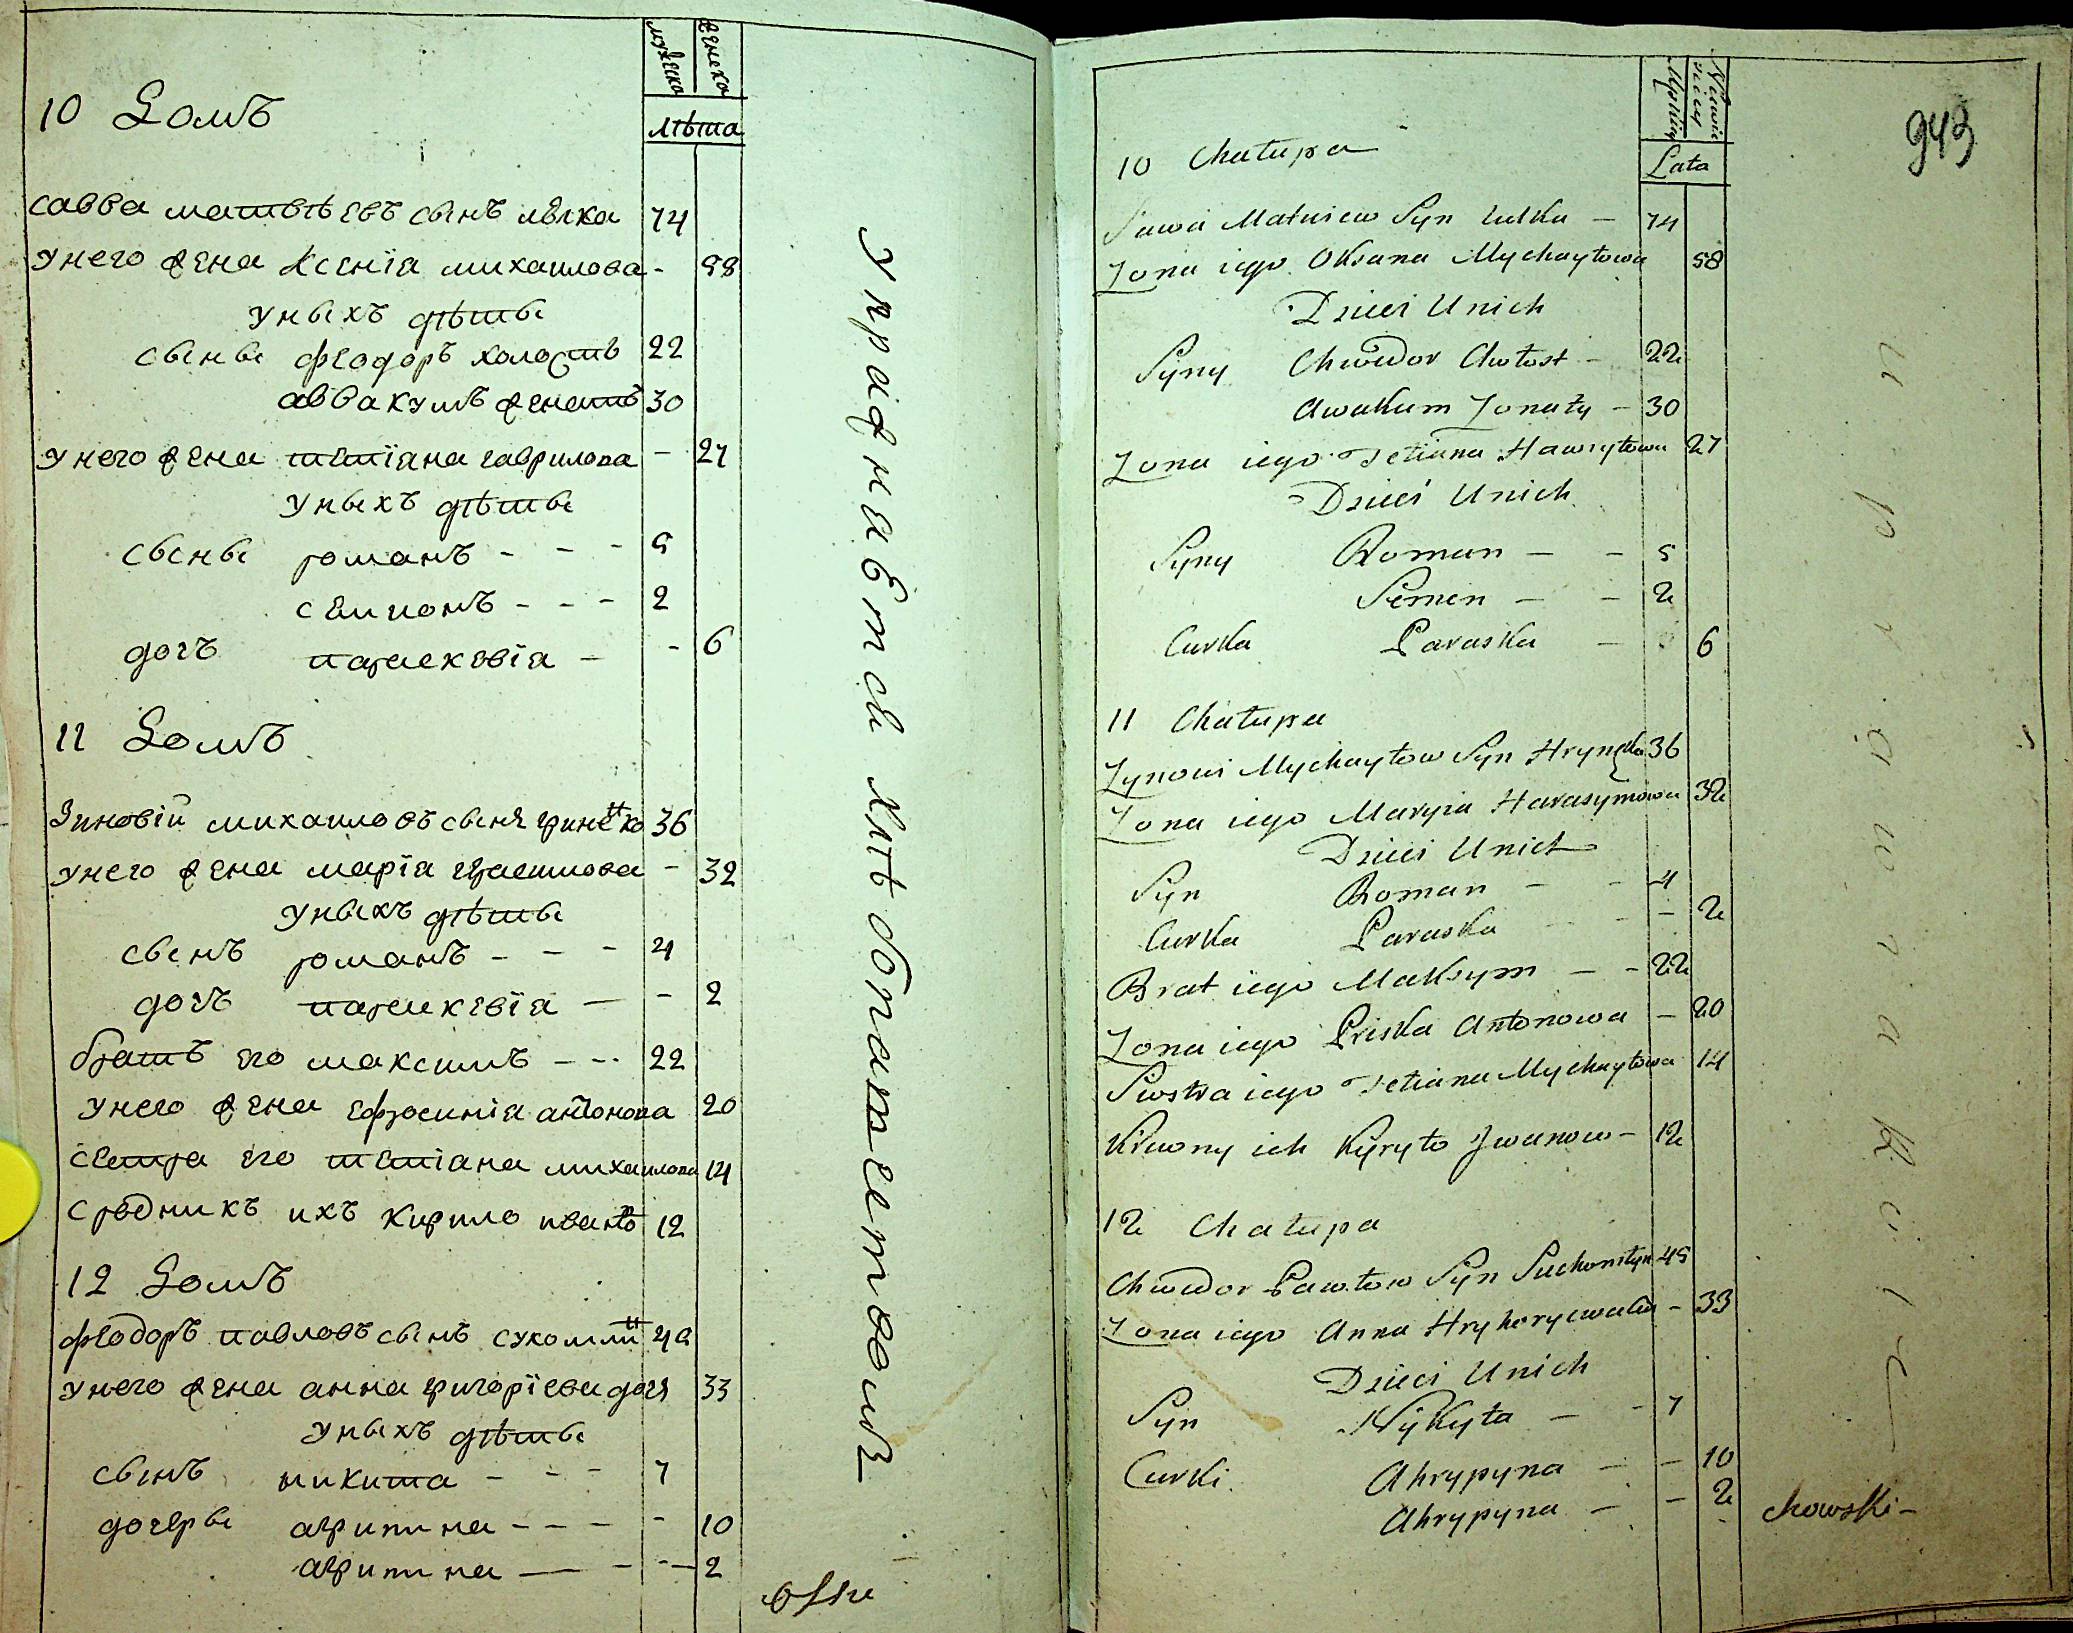 мужеска женска
лѣта
10 Домъ
савва матвѣевъ сынъ лѣлка 74
унего жена ксенія михаилова - 58
уныхъ дѣты
сыны феодоръ холостъ 22
аввакумъ женатъ 30
унего жена тетіана гаврилова - 27
уныхъ дѣты
сыны романъ - - - 5
семионъ - - - 2
дочъ параскевія - - 6
11 Домъ
Зиновій михаиловъ сынъ гриненко 36
унего жена маріа герасимова - 32
уныхъ дѣты
сынъ романъ - - 4
дочъ параскевія - - 2
братъ его максимъ - - - 22
унего жена ефросинія антонова 20
сестра его тетіана михаилова 14
сродникъ ихъ кирило ивановъ 12
12 Домъ
феодоръ павловъ сынъ сухомлин 45
унего жена анна григоріева дочь 33
уныхъ дѣты
сынъ никита - - - 7
дочеры агрипина - - - - 10
агрипина - - - 2
Упражнявытся
offu
943
Męskiey Niewieściey
Lata
10 Chałupa
Sawa Matwiew Syn Lulka - 74
Żona iego Oksana Mychayłowa 58
Dzieci Unich
Syny Chwedor Chołost - 22
Awakum Żonaty - 30
Żona iego Tetiana Hawryłowa 27
Dzieci Unich
Syny Roman - - 5
Semen - - 2
Curka Paraska - 6
11 Chałupa
Zynowi Mychayłow Syn Hrynenko 36
Żona iego Maryia Harasymowa 32
Dzieci Unich
Syn Roman - - 4
Curka Paraska - 2
Brat iego Maksym - - 22
Żona iego Priska Antonowa - 20
Siostra iego Tetiana Mychayłowa 14
Krewny ich Kyryło Iwanow - 12
12 Chałupa
Chwedor Pawłow Syn Suchomłyn 45
Żona iego Anna Hryhorywała - 33
Dzieci Unich
Syn Nykyta - - 7
Curki Ahrypyna - - 10
Ahrypyna - - 2
chowski -